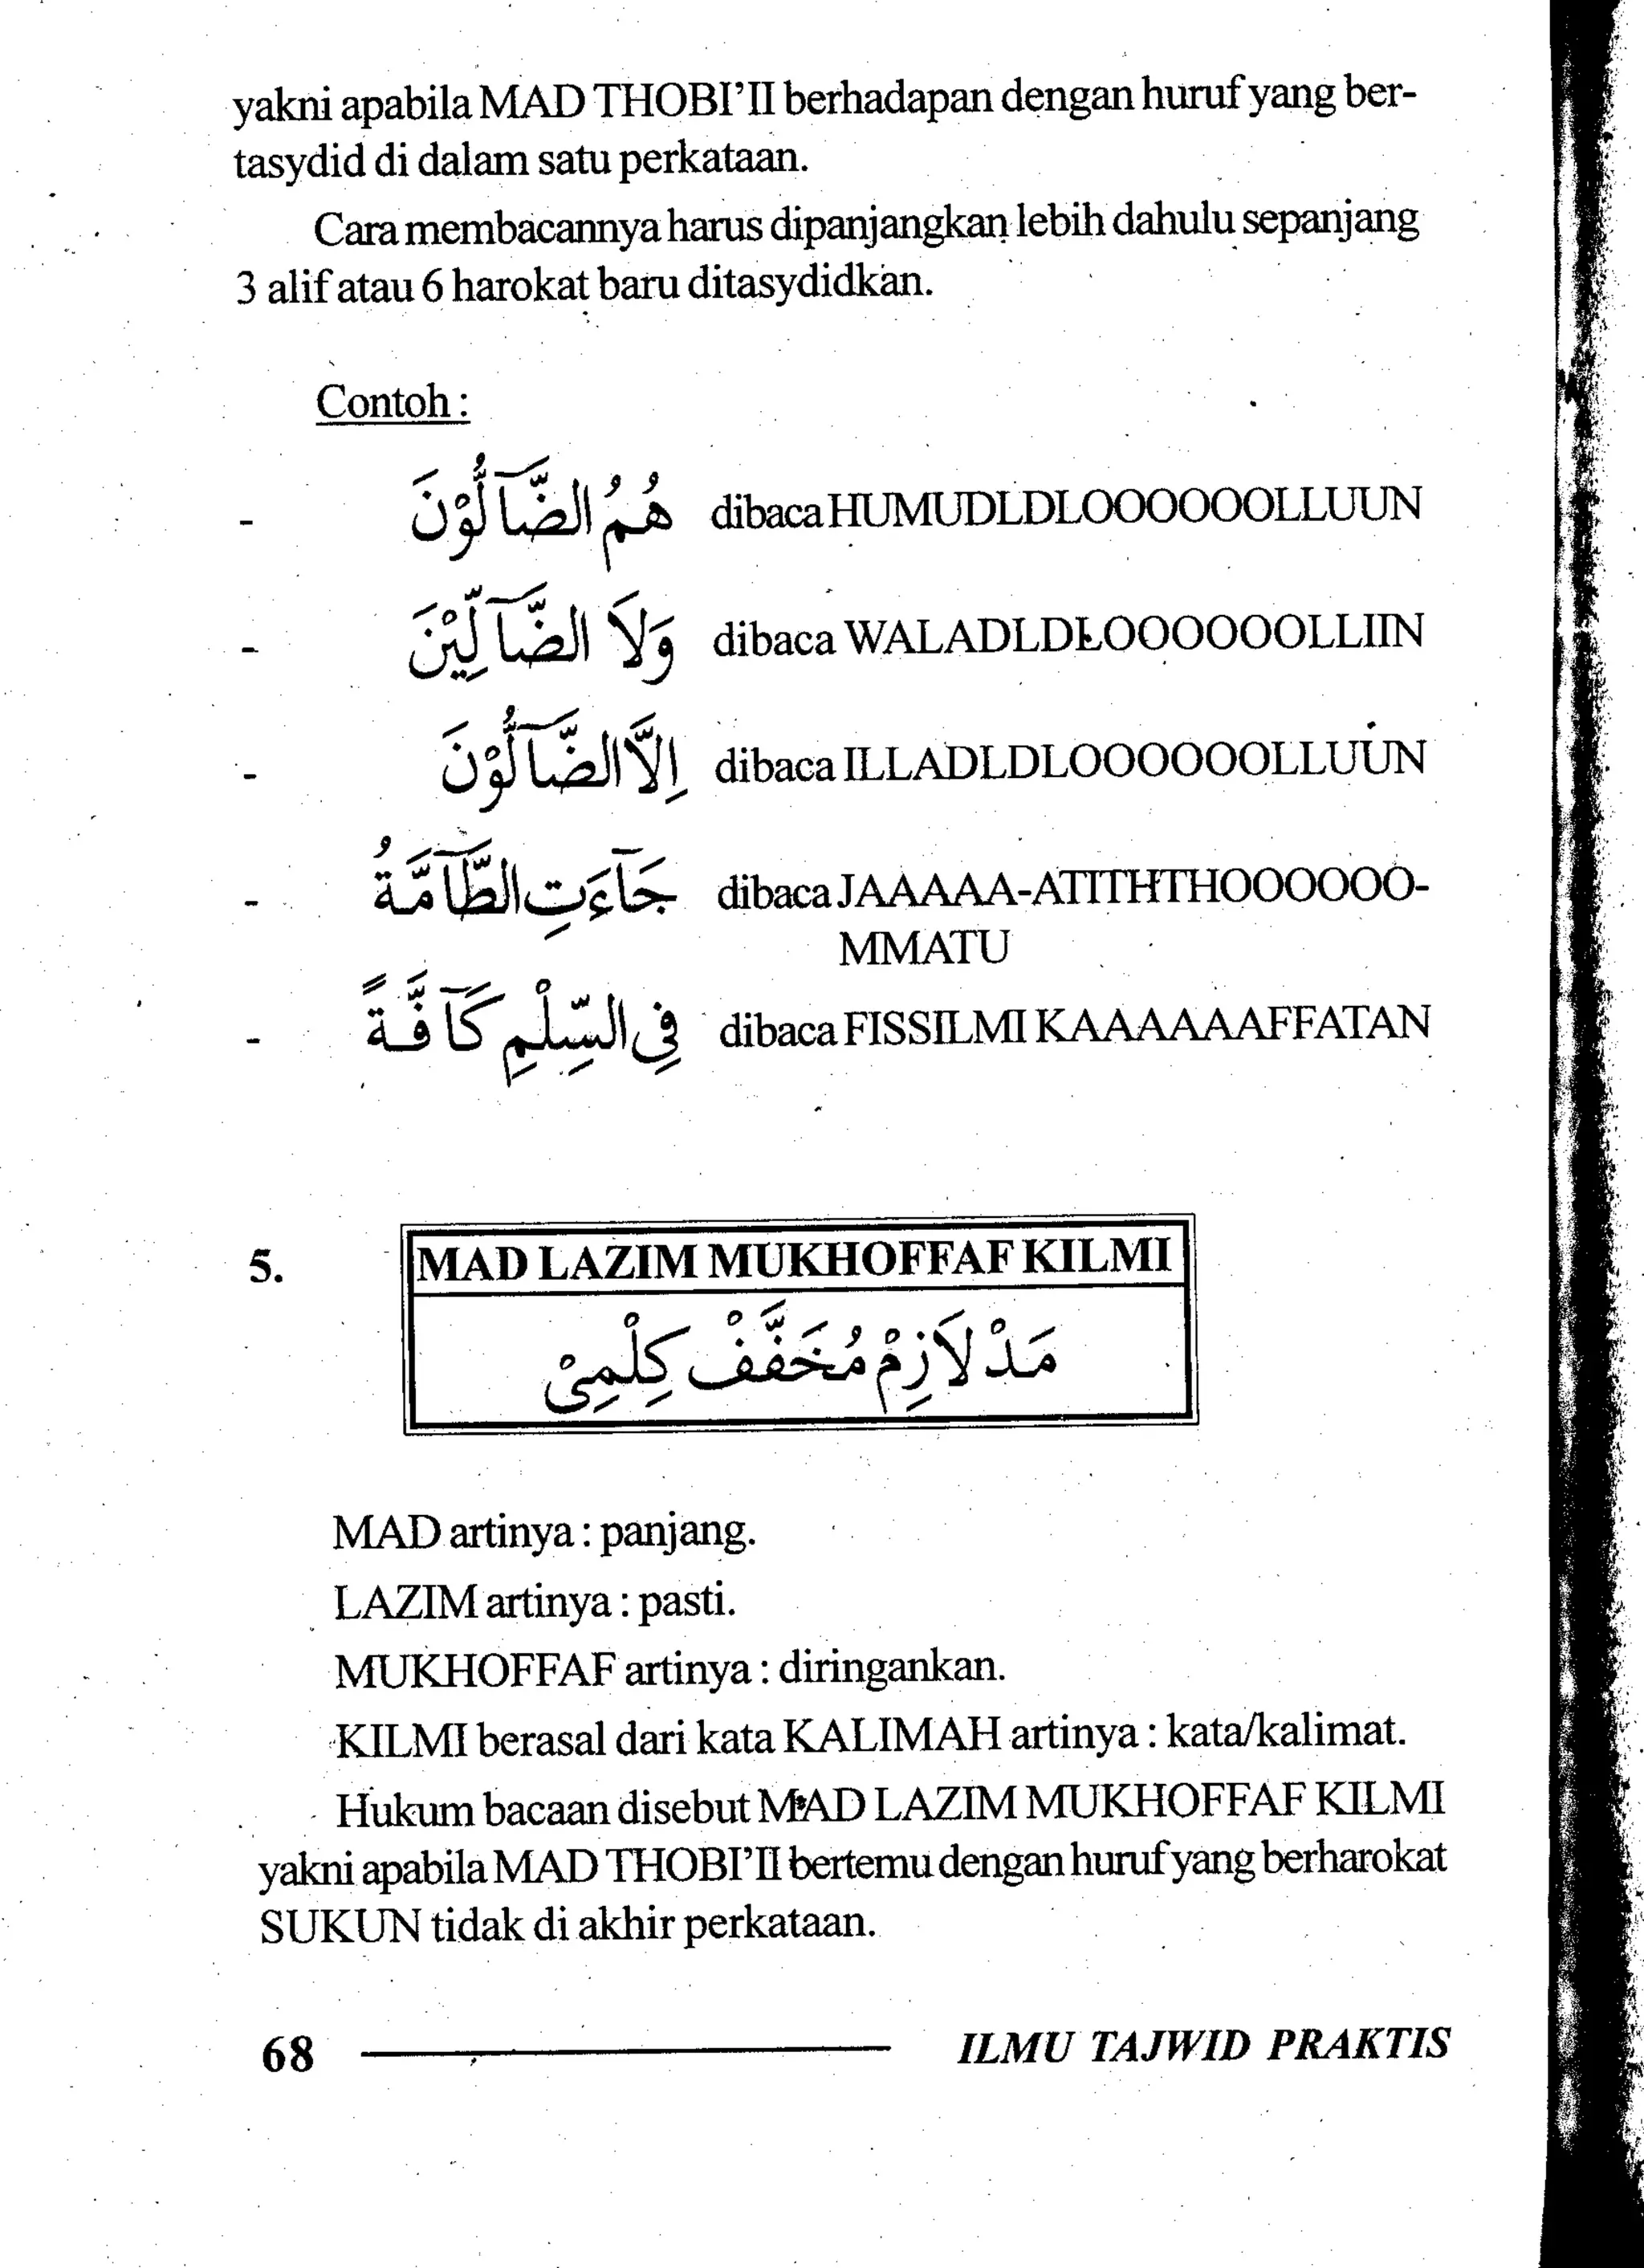 yakni apabila MAD THOBI'II berhadapan dengan huruf yang ber-
tasydid di dalam satu perkataan.
Cara membacannya harus dipanjangkan lebih dahulu sepanjang
3 alif atau 6 harokat baru ditasydidkan.
Contoh :
- هُمُ الضَّآلُّوْنَ dibaca HUMUDLDLOOOOOOLLUUN
- وَلَا الضَّآلِّيْنَ dibaca WALADLDLOOOOOOLLIIN
- اِلَّا الضَّآلُّوْنَ dibaca ILLADLDLOOOOOOLLUUN
- جَآءَتِ الطَّآمَّةُ dibaca JAAAAA-ATITHTHOOOOOO-
MMATU
- فِي السِّلْمِ كَآفَّةً dibaca FISSILMI KAAAAAAFFATAN
5. MAD LAZIM MUKHOFFAF KILMI
مَدْ لَازِمْ مُخَفَّفْ كِلْمِىْ
MAD artinya : panjang.
LAZIM artinya : pasti.
MUKHOFFAF artinya : diringankan.
KILMI berasal dari kata KALIMAH artinya : kata/kalimat.
Hukum bacaan disebut MAD LAZIM MUKHOFFAF KILMI
yakni apabila MAD THOBI'II bertemu dengan huruf yang berharokat
SUKUN tidak di akhir perkataan.
68 ILMU TAJWID PRAKTIS